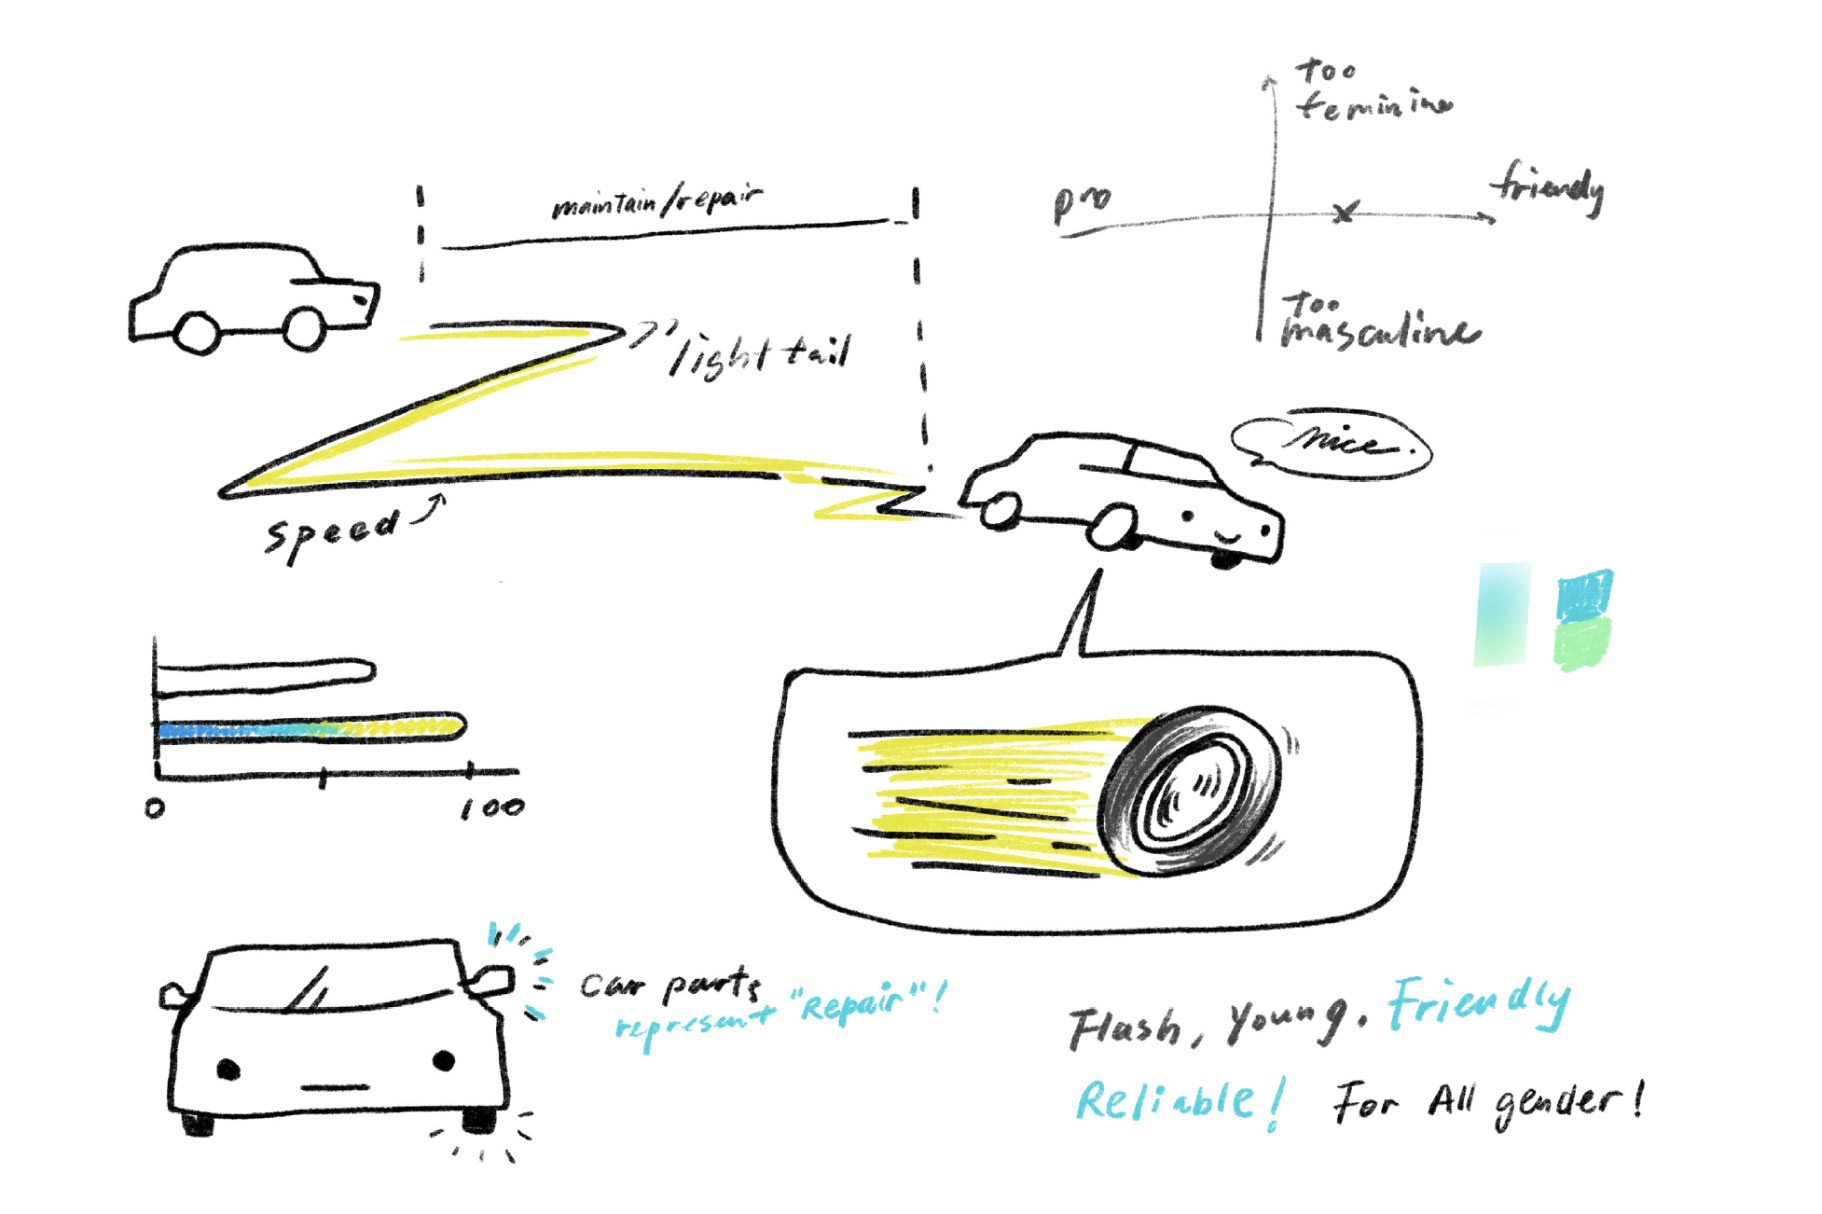 maintain/repair
light tail
speed
Too
feminine
pro
friendly
Too
masculine
nice.
0
100
car parts
represent "Repair"!
Flash, Young. Friendly
Reliable! For All gender!